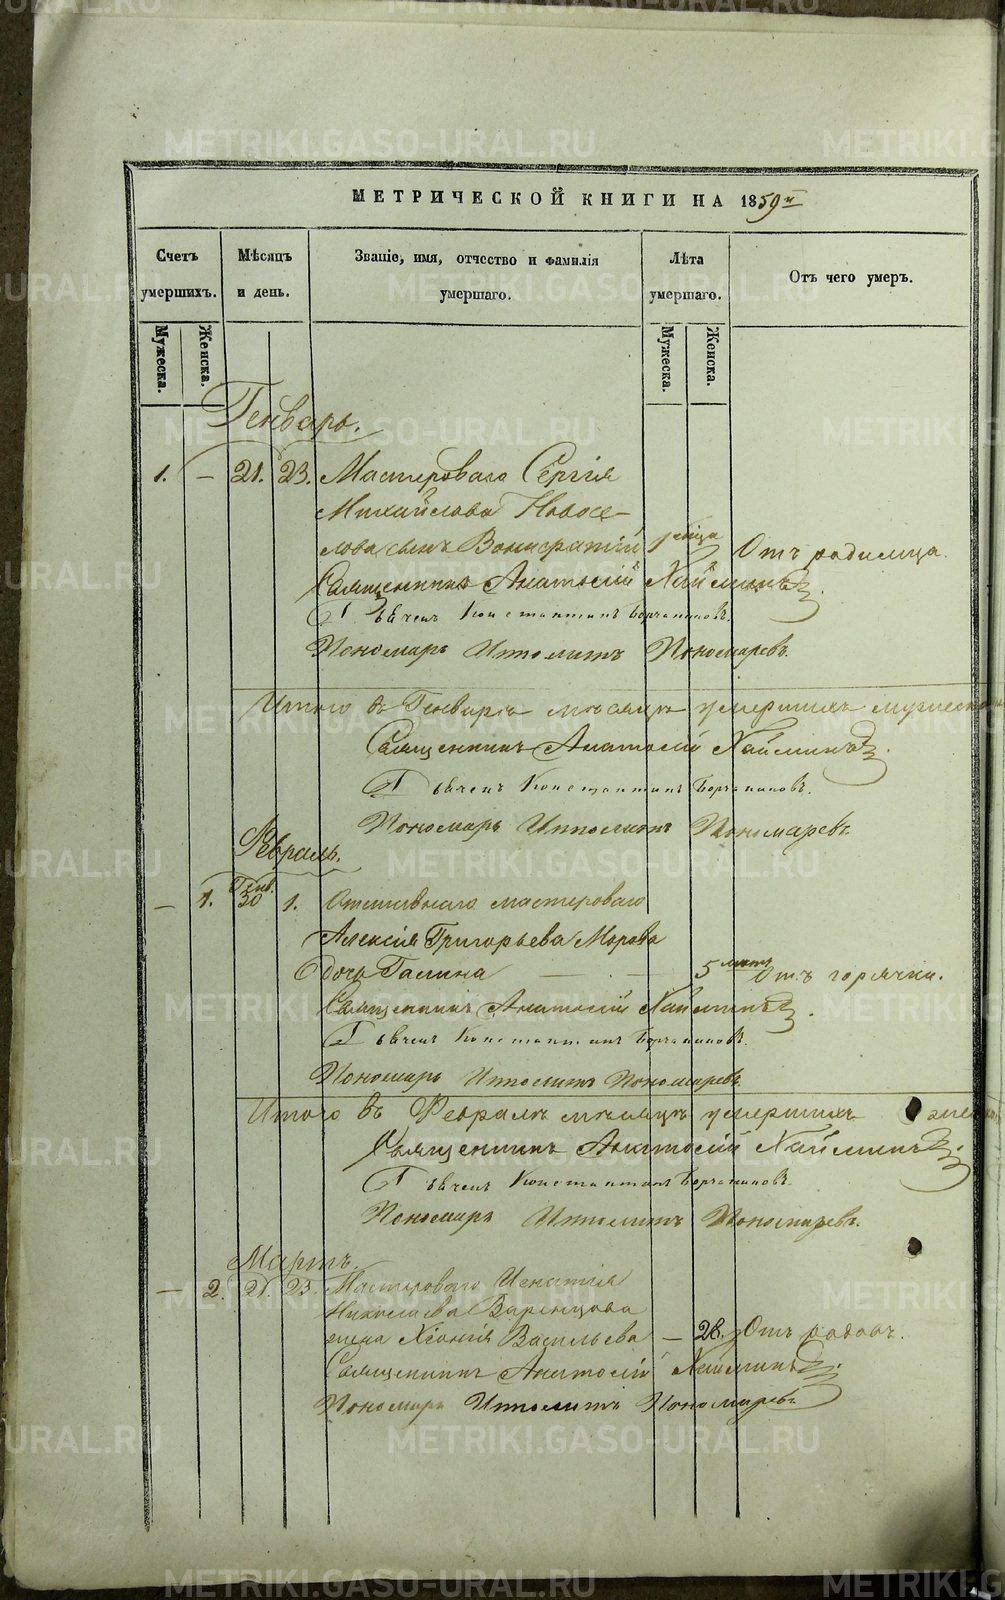 МЕТРИЧЕСКОЙ КНИГИ НА 1859й
Счетъ умершихъ.
Мѣсяцъ и день.
Званіе, имя, отчество и фамилія умершаго.
Лѣта умершаго.
Отъ чего умеръ.
Мужеска.
Женска.
Мужеска.
Женска.
Генварь.
1. — 21. 23. Мастероваго Сергія
Михайлова Новосе-
лова сынъ Вонифатій Отъ родимца.
Священникъ Анатолій Хайминъ
Константинъ
Пономарь Ипполитъ Пономаревъ.
Итого въ Генварѣ мѣсяцѣ умершихъ
Священникъ Анатолій Хайминъ.
Константинъ
Пономарь Ипполитъ Пономаревъ.
Февраль.
— 1. Генв. 30 1. Отставнаго мастероваго
Алексія Григорьева Морова
дочь Галина — — 5 лѣтъ Отъ горячки.
Священникъ Анатолій Хайминъ.
Константинъ
Пономарь Ипполитъ Пономаревъ.
Итого въ Февралѣ мѣсяцѣ умершихъ
Священникъ Анатолій Хайминъ.
Константинъ
Пономарь Ипполитъ Пономаревъ.
Мартъ.
— 2. 21. 23. Мастероваго Игнатія
Николаева Варенцова
жена Хіонія Васильева — 28. Отъ родовъ.
Священникъ Анатолій Хайминъ.
Пономарь Ипполитъ Пономаревъ.
METRIKI.GASO-URAL.RU